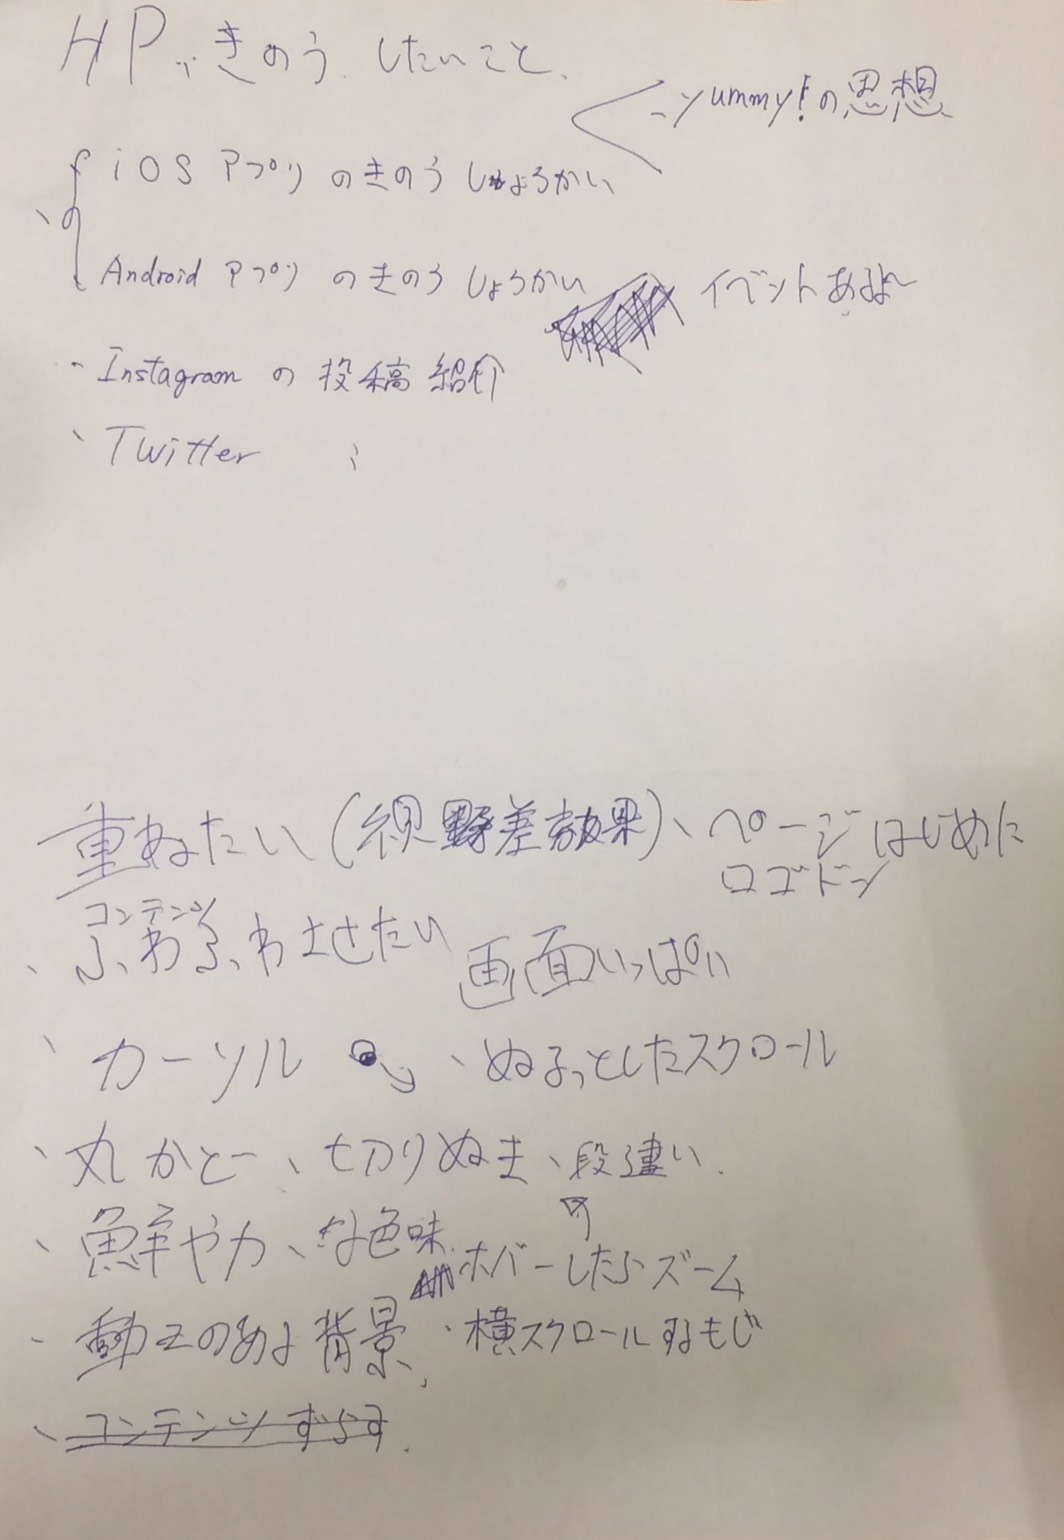 HP、きのう、したいこと、
yummy!の思想
iOS アプリ のきのう しょうかい
Android アプリ のきのう しょうかい
イベントあるよ〜
・Instagram の 投稿 紹介
、Twitter 〃
重ねたい(視野差効果)、ページはじめに
ロゴドン
コンテンツ
、ふわふわさせたい 画面いっぱい
、カーソル 、ぬるっとしたスクロール
、丸かど、切りぬき、段違い.
、鮮やか、な色味.
ホバーしたらズーム
・動きのある背景、・横スクロールするもじ
、コンテンツずらす.